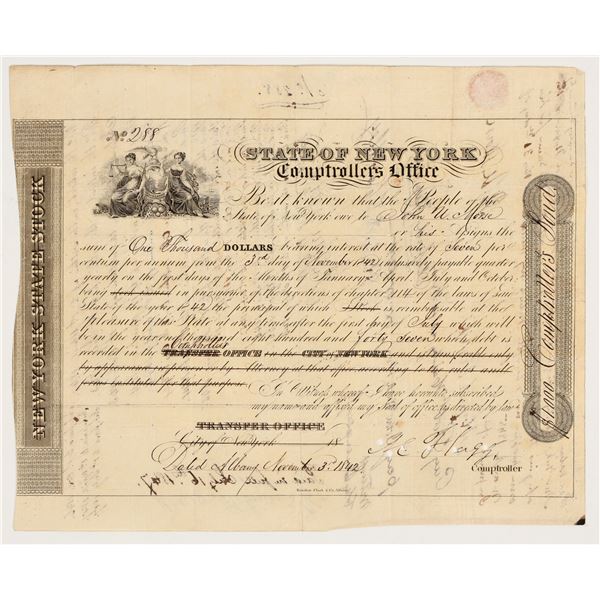 No. 288
STATE OF NEW YORK
Comptrollers Office
Be it known that the People of the
State of New York owe to John W. Morse
or his Assigns the
sum of One Thousand DOLLARS bearing interest at the rate of Seven per
centum per annum from the 3rd day of November 1842 inclusively payable quarter
yearly on the first days of the Months of January April July and October
being in pursuance of the directions of chapter 114 of the laws of said
State of the year 1842 the principal of which is reimbursable at the
pleasure of this State at any time after the first day of July which will
be in the year one thousand eight hundred and forty seven which debt is
Comptrollers
recorded in the TRANSFER OFFICE in the CITY OF NEW YORK and transferable only
by appearance in person or by Attorney at that office according to the rules and
forms instituted for that purpose
In Witness whereof I have hereunto subscribed
my name and affixed my Seal of office as directed by law
TRANSFER OFFICE
City of New York 18
A. C. Flagg
Dated Albany November 3d 1842
Comptroller
NEW YORK STATE STOCK
$1000 Comptroller's Seal